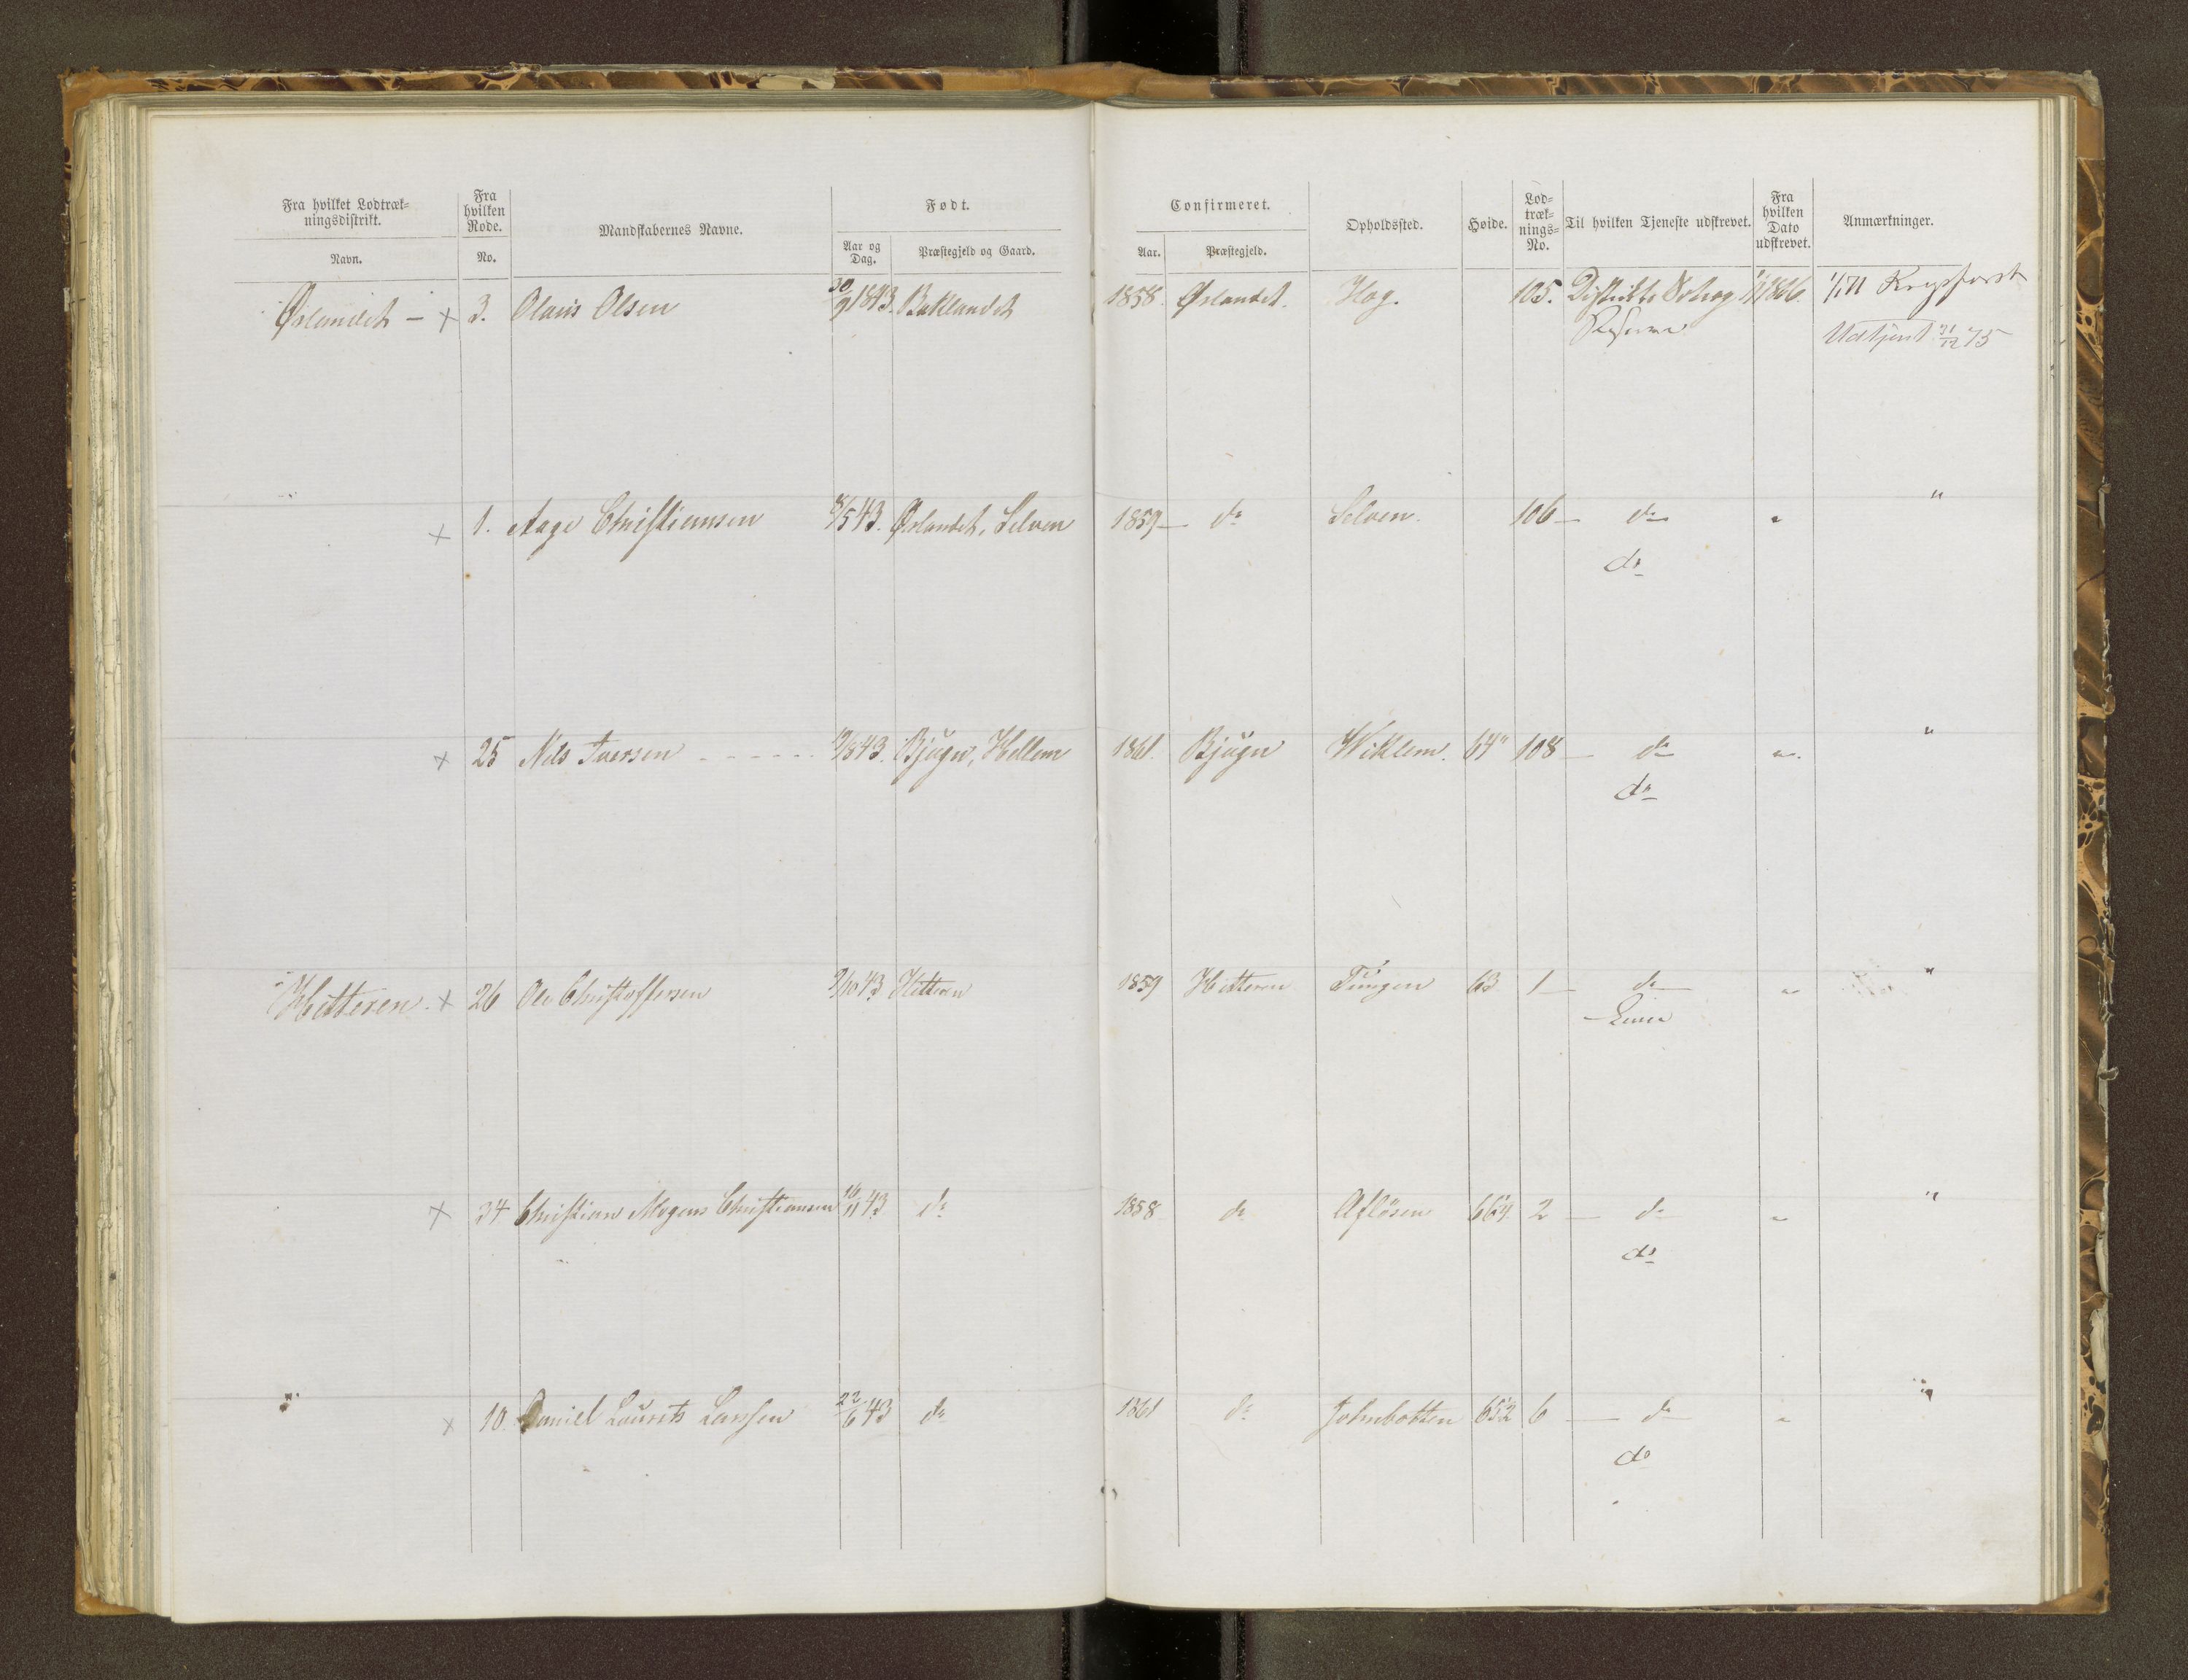 Fra hvilket Lodtræk-
ningsdistrikt.
Navn.
Fra
hvilken
Rode.
No.
Mandskabernes Navne.
Født.
Aar og
Dag.
Præstegjeld og Gaard.
Confirmeret.
Aar.
Præstegjeld.
Opholdssted.
Høide.
Lod-
træk-
nings-
No.
Til hvilken Tjeneste udskrevet.
Fra
hvilken
Dato
udskrevet.
Anmærkninger.
Ørlandet – x 3. Olaus Olsen 30/9 1843. Baklandet 1858. Ørlandet. Hog. 105. Distrikts 1/1 1866. 1/1 71
Reserve
Udtjent 31/12 75
" x 1. Aage Christiansen 8/5 43. Ørlandet, Selven 1859 – do Selven. 106 – do " "
do
x 25 Nils Iversen 9/8 43. Bjugn, Hellem 1861. Bjugn Wiklem. 64" 108 – do " "
do
Hitteren. x 26 Ole Christoffersen 9/10 43 Hitteren 1859 Hitteren Tungen 63 1 – do " "
Linie
x 34 Christian Mogens Christiansen 16/11 43 do 1858 do Afløsen 66¾ 2 – do " "
do
" x 10. Daniel Laurits Larssen 22/6 43 do 1861 do Johnbotten 65½ 6 – do " "
do